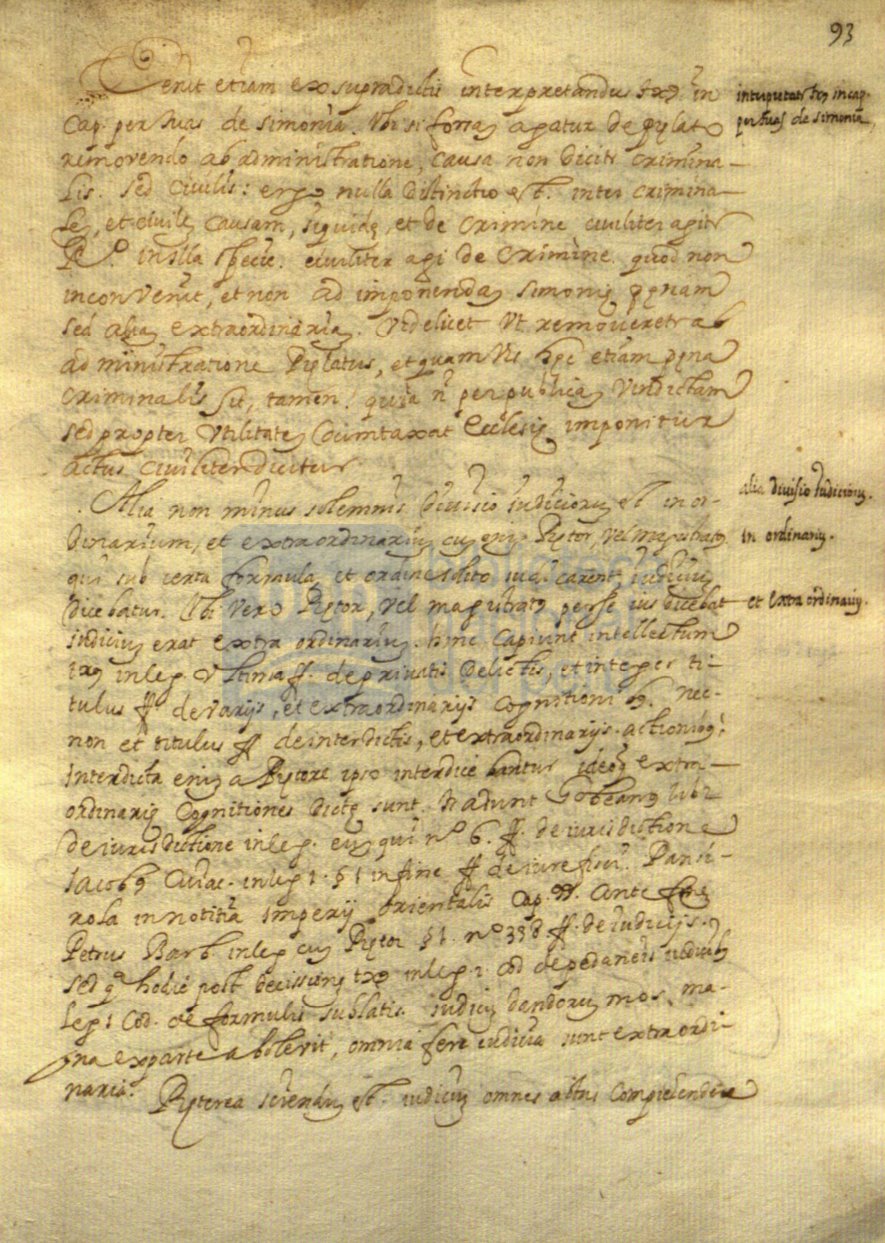 93
Venit etiam ex supradictis interpretandus txq. in
Cap. per tuas de simonia. Ubi si forsan agatur de prelato
removendo ab administratione, causa non dicitr crimina-
lis. sed civilis: ergo nulla distinctio est. inter crimina-
le, et civile causam, siquide, et de crimine civiliter agitr
Ro. in illa specie. civiliter agi de crimine. quod non
inconvenit, et non ad imponenda simonie penam
sed alia extraordinaria. Videlicet Vt removeretr ab
administratione Prelatus, et quam vis hec etiam pena
criminalis sit, tamen. quia n per publica Vindictam
sed propter Vtilitate dumtaxat Ecclesie imponitur
actus civiliter dicitur
intrputatr txq in cap.
per tuas de simonia
Alia non minus solemnis divisio iudicioru est in or-
dinarium, et extraordinariu cu eni Pretor, vel magistratq
qui sub certa formula, et ordine dicebatur. Ubi vero Pretor, vel magistratq per se ius dicebat
iudiciu erat extra ordinariu. hinc capiunt intellectum
alia divisio iudicioru.
in ordinariu.
et extra ordinariu.
txq in leg. Vltima ff. de privatis delictis, et integer ti-
tulus ff de varijs, et extraordinarijs cognitionibq. nec-
non et titulus ff de interdictis, et extraordinarijs actionibq:
Interdicta eni a Pretore ipso interdicebantur ideoq extra-
ordinarie Cognitiones dicte sunt. tradunt Gobeanq lib 2
de iurisdictione in leg. cu qui no 6. ff. de iurisdictione
Iacobq Cuiac. in leg 1. § 1 in fine ff de iure fisci. Pansi-
rola in notitia Imperij orientalis Cap. ante fine
Petrus Barb. in leg cu Pretor § 1. no 338 ff. de iudicijs.
sed q hodie post decissione txq in leg. 2 Cod de pedaneis iudicibq
leg 1 Cod. de formulis sublatis. iudicu dandoru mos, ma-
gna ex parte abolevit, omnia fere iudicia sunt extraordi-
naria.
Preterea sciendu est. iudiciu omnes actus comprehendere